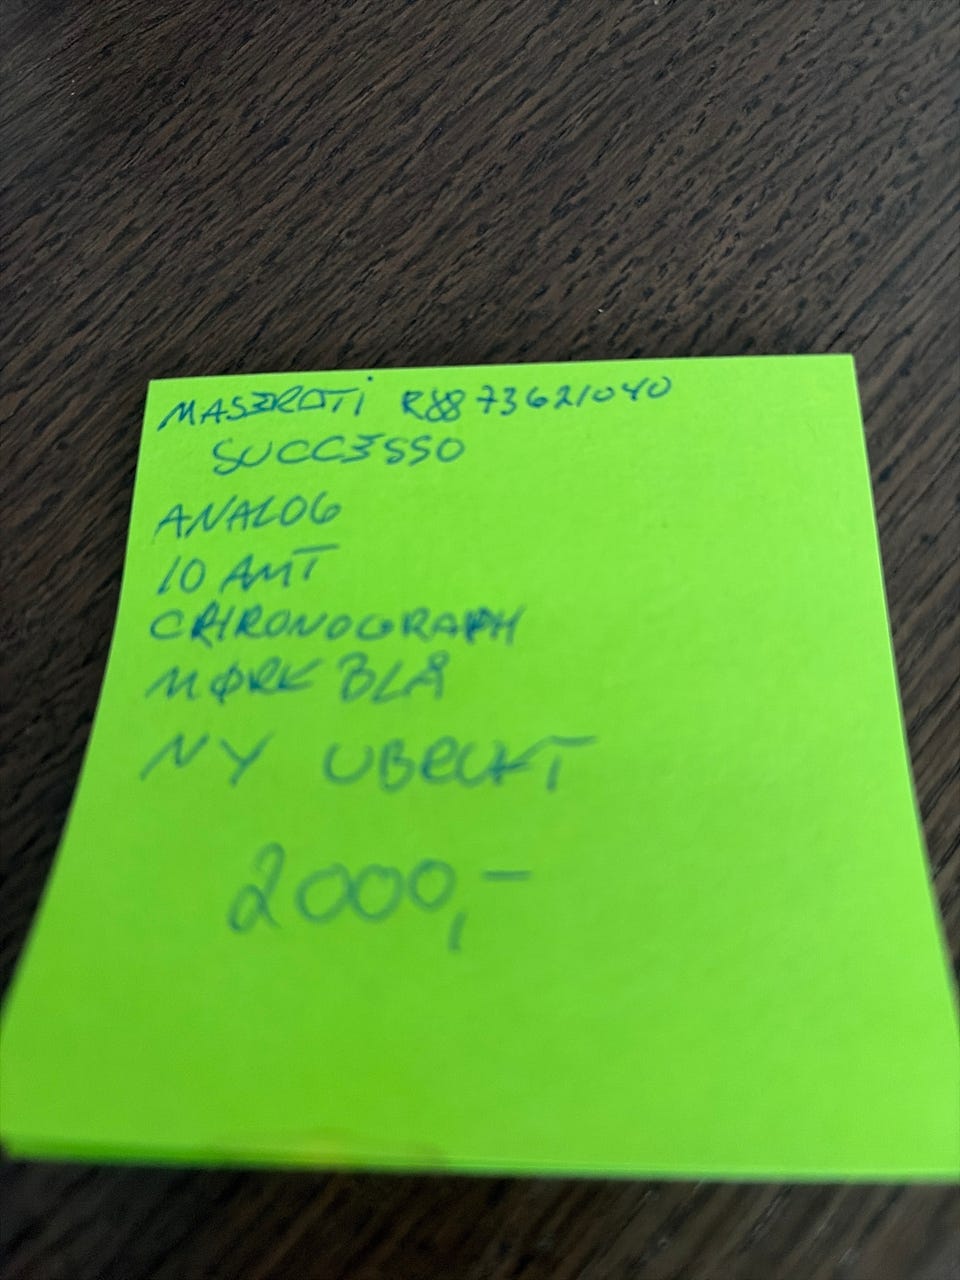 MASERATI R8873621040
SUCCESSO
ANALOG
10 AMT
CHRONOGRAPH
MØRK BLÅ
NY UBRUKT
2000,-